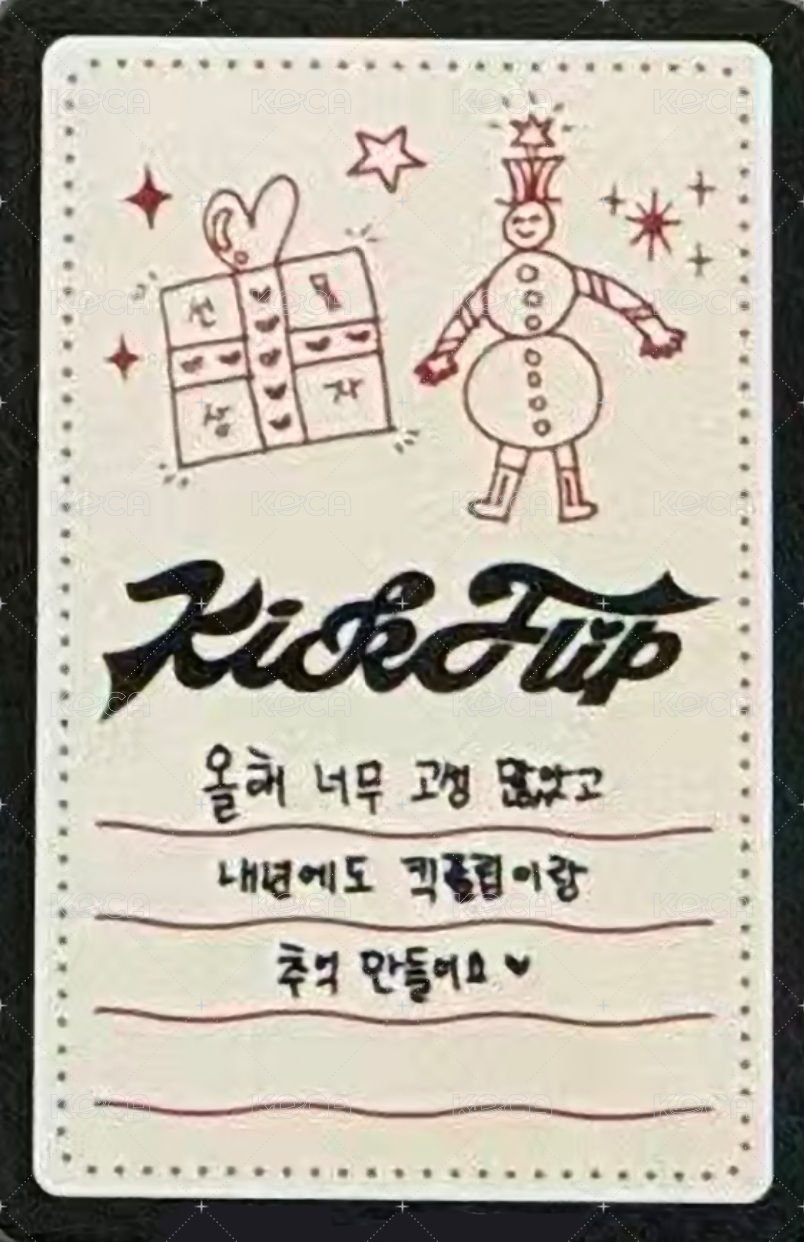 선 물
상 자
KickFlip
올해 너무 고생 많았고
내년에도 킥플립이랑
추억 만들어요 ♥
KOCA